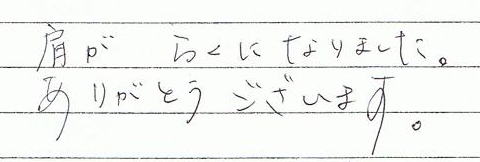 肩が らくになりました。
ありがとう ございます。